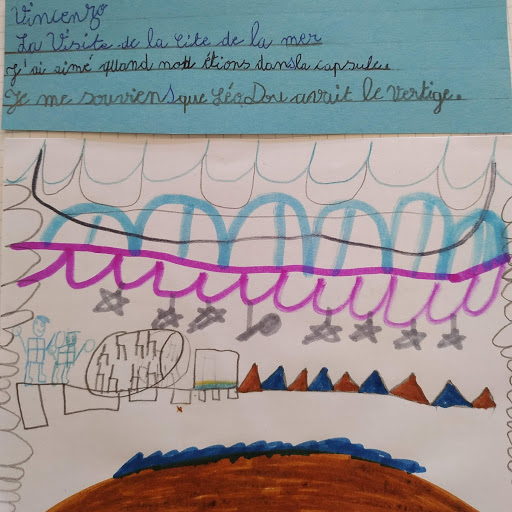 Vincenzo
La Visite de la Cité de la mer
J'ai aimé quand nous étions dans la capsule.
Je me souviens que Léo, Dou avait le vertige.